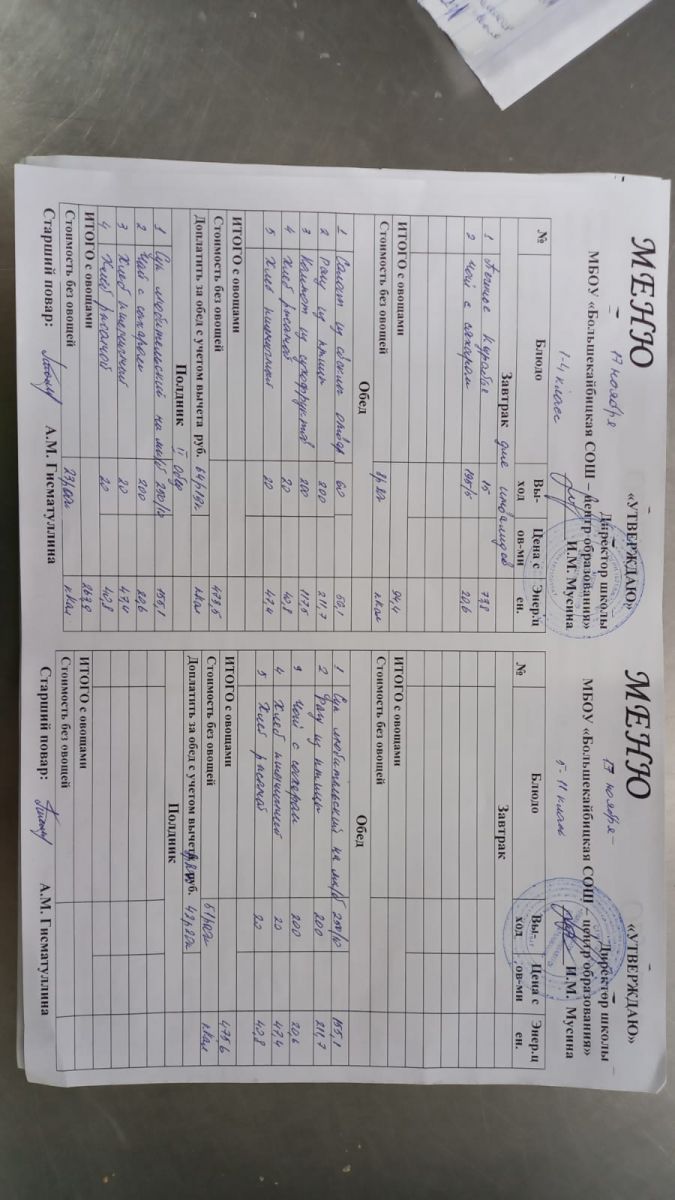 МЕНЮ
«УТВЕРЖДАЮ»
17 ноября
Директор школы
МБОУ «Большекайбицкая СОШ – центр образования»
1-4 класс
И.М. Мусина
№ Блюдо Вы-ход Цена с ов-ми Энер.ц ен.
Завтрак для инвалидов
1 Печенье Курабье 15 73,8
2 Чай с сахаром 195/5 20,6
ИТОГО с овощами 94,4
Стоимость без овощей ккал
Обед
1 Салат из свеклы отвар 60
2 Рагу из птицы 200 211,7
3 Компот из сухофруктов 200 117,5
4 Хлеб ржаной 20 40,8
5 Хлеб пшеничный 20 47,4
ИТОГО с овощами 473,5
Стоимость без овощей ккал
Доплатить за обед с учетом вычета руб.
Полдник II обед
1 Суп любительский на м/б 250/10 155,1
2 Чай с сахаром 200 20,6
3 Хлеб пшеничный 20 47,4
4 Хлеб ржаной 20 40,8
ИТОГО с овощами 263,9
Стоимость без овощей ккал
Старший повар: А.М. Гисматуллина
МЕНЮ
«УТВЕРЖДАЮ»
17 ноября
Директор школы
МБОУ «Большекайбицкая СОШ – центр образования»
5-11 класс
И.М. Мусина
№ Блюдо Вы-ход Цена с ов-ми Энер.ц ен.
Завтрак
ИТОГО с овощами
Стоимость без овощей
Обед
1 Суп любительский на м/б 250/10 155,1
2 Рагу из птицы 200 211,7
3 Чай с сахаром 200 20,6
4 Хлеб пшеничный 20 47,4
5 Хлеб ржаной 20 40,8
ИТОГО с овощами 475,6
Стоимость без овощей ккал
Доплатить за обед с учетом вычета руб.
Полдник
ИТОГО с овощами
Стоимость без овощей
Старший повар: А.М. Гисматуллина